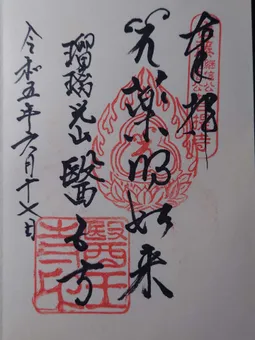 奉拝
薬師如来
瑠璃光山醫王寺
令和五年六月十七日
醫王寺印